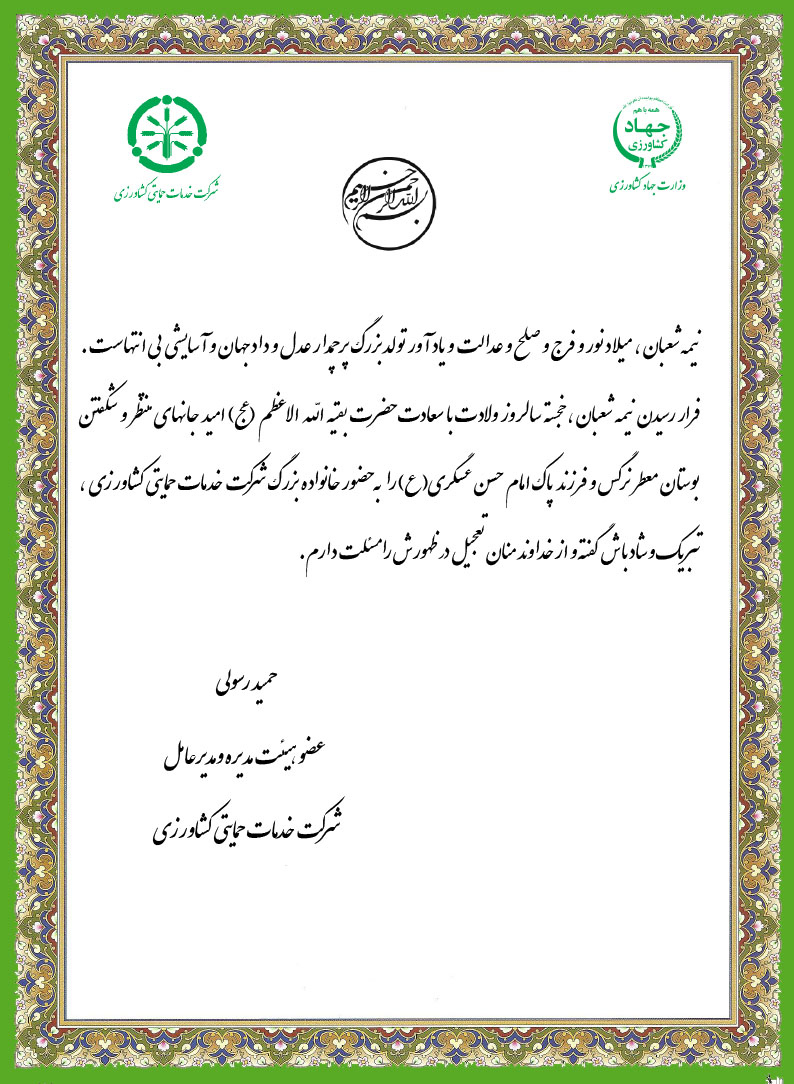 همه با هم
جهاد
کشاورزی
وزارت جهاد کشاورزی
شرکت خدمات حمایتی کشاورزی
بسم الله الرحمن الرحیم
نیمه شعبان ، میلاد نور و فرج و صلح و عدالت و یادآور تولد بزرگ پرچمدار عدل و داد جهان و آسایشی بی انتهاست .
فرار رسیدن نیمه شعبان ، خجسته سالروز ولادت با سعادت حضرت بقیه الله الاعظم (عج) امید جانهای منتظر و شکفتن
بوستان معطر نرگس و فرزند پاک امام حسن عسکری(ع) را به حضور خانواده بزرگ شرکت خدمات حمایتی کشاورزی ،
تبریک و شاد باش گفته و از خداوند منان تعجیل در ظهورش را مسئلت دارم .
حمید رسولی
عضو هیئت مدیره و مدیرعامل
شرکت خدمات حمایتی کشاورزی